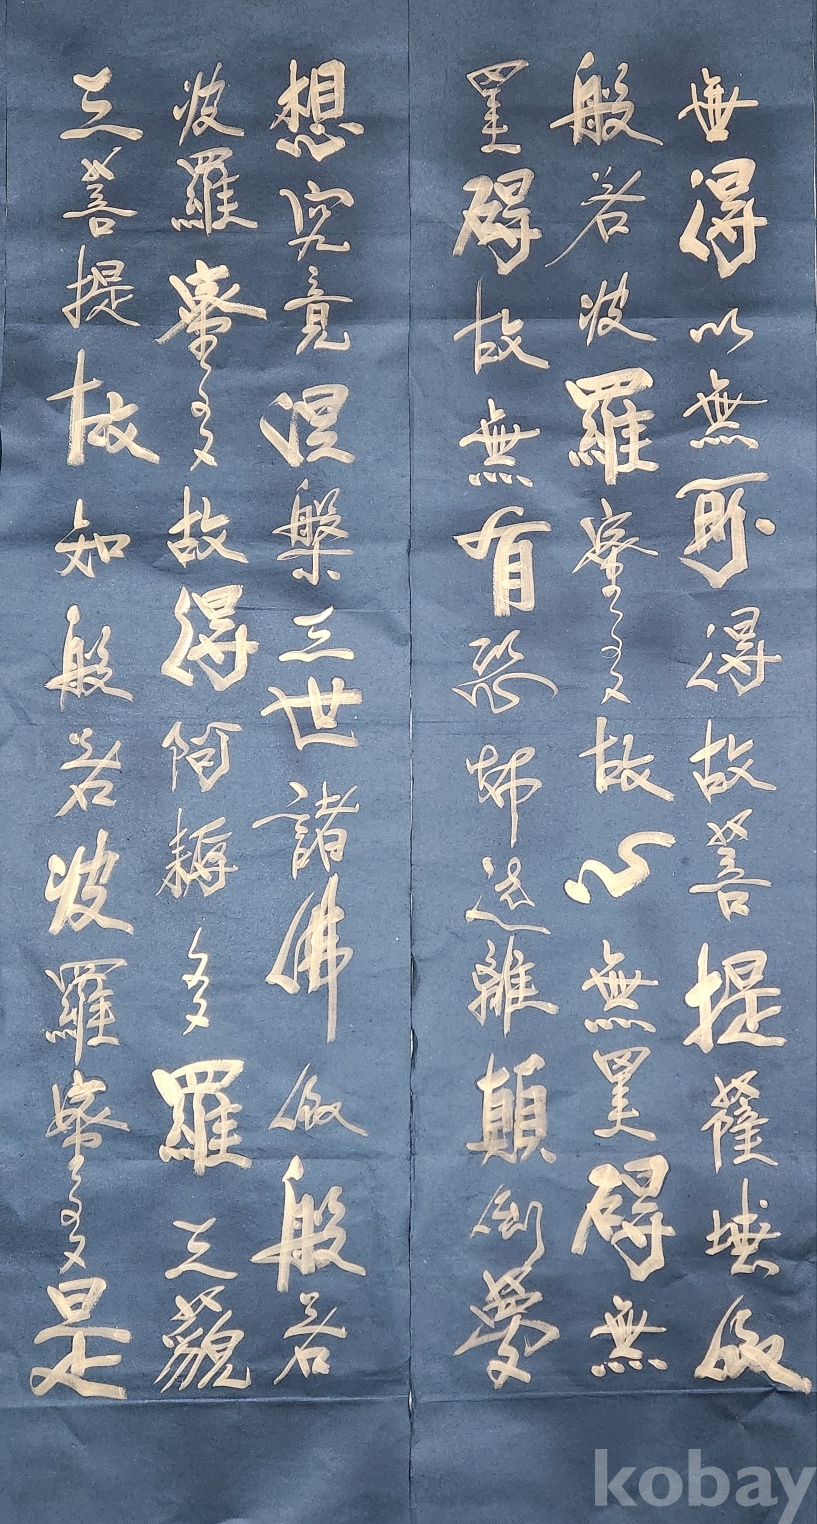 無得以無所得故菩提薩埵依
般若波羅蜜多故心無罣碍無
罣碍故無有恐怖遠離顛倒夢
想究竟涅槃三世諸佛依般若
波羅蜜多故得阿耨多羅三藐
三菩提故知般若波羅蜜多是
kobay